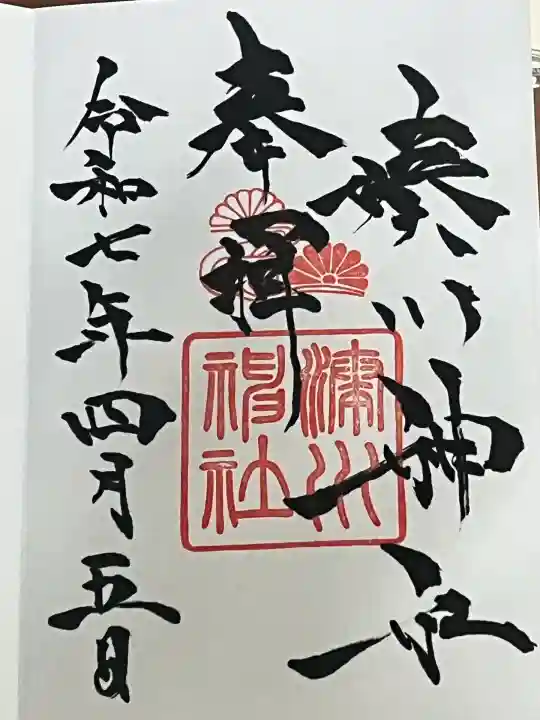 湊川神社
奉拝
湊川
神社
令和七年四月五日